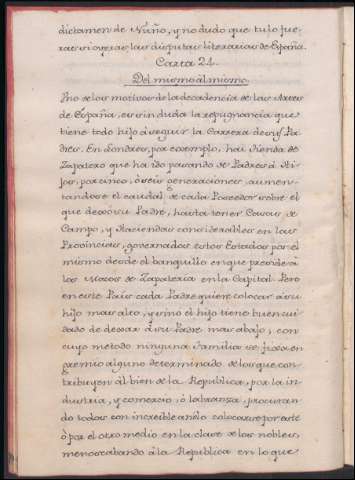 dictamen de Nuño, y no dudo que tu lo fue-
ras si oyeras las disputas literarias de España.
Carta 24.
Del mismo al mismo.
Uno de los motivos de la decadencia de las Artes
de España, es sin duda la repugnancia que
tiene todo hijo á seguir la Carrera de sus Pa-
dres. En Londres, por exemplo, hai tienda de
Zapatero que ha ido pasando de Padres á Hi-
jos, por cinco, ó seis generaciones, aumen-
tandose el caudal de cada Poseedor sobre el
que dexó su Padre, hasta tener Casas de
Campo, y Haciendas considerables en las
Provincias, governados estos Estados por el
mismo desde el banquillo en que preside á
los Mozos de Zapateria en la Capital. Pero
en este Pais cada Padre quiere colocar á su
hijo mas alto, y sino el hijo tiene buen cui-
dado de dexar á su Padre mas abajo; con
cuyo metodo ninguna familia se fixa en
gremio alguno determinado de los que con-
tribuyen al bien de la Republica, por la in-
dustria, y comercio, ó labranza, procuran-
do todos con increible anelo colocarse por este
ò por el otro medio en la clase de los nobles,
menoscabando á la Republica en lo que